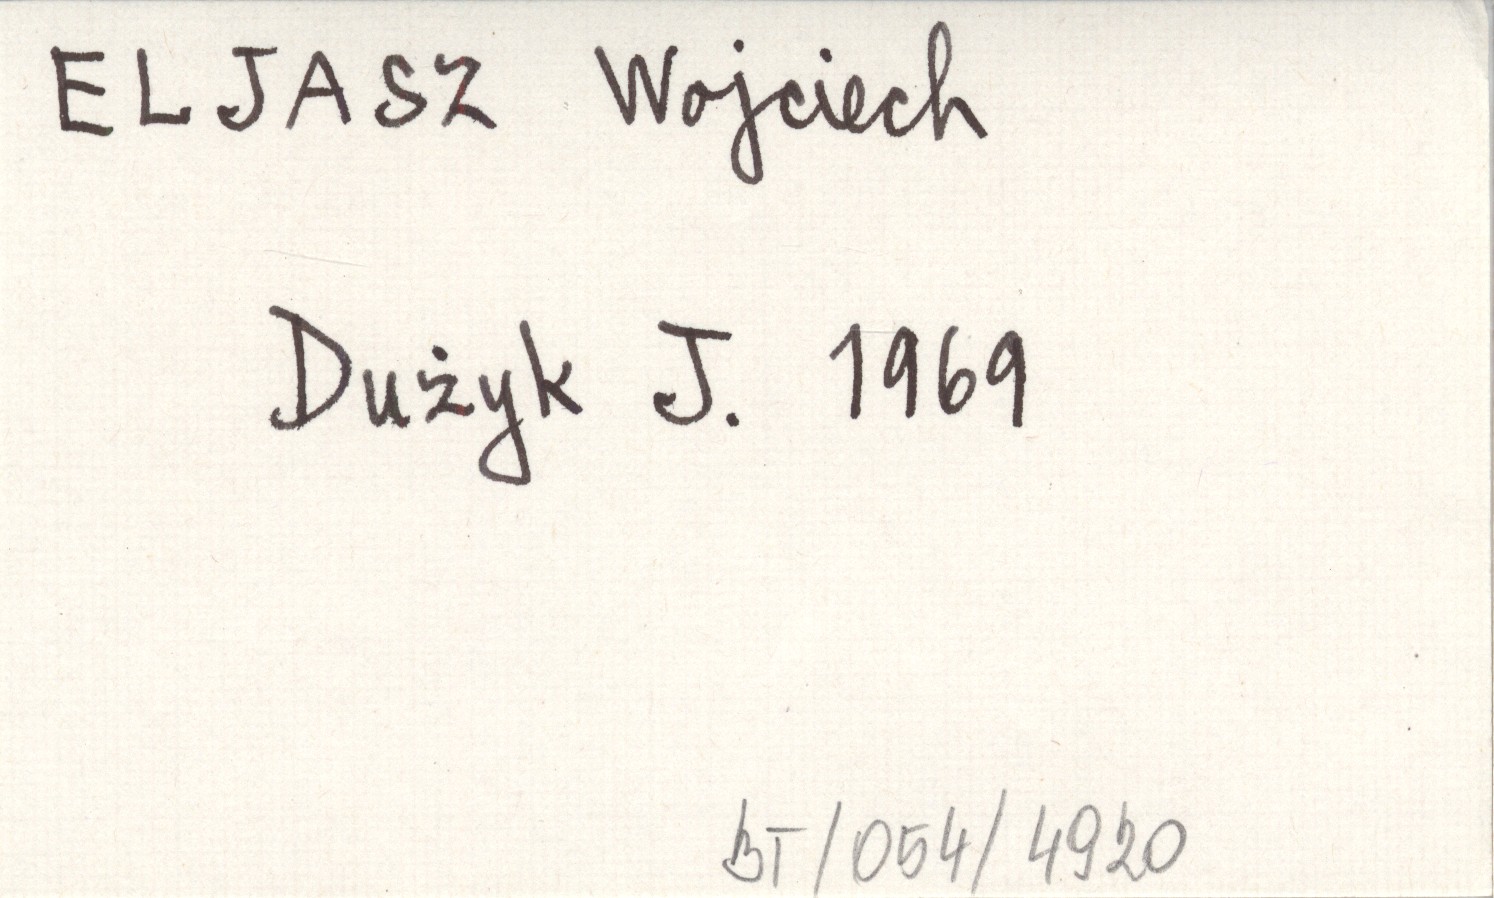 ELJASZ Wojciech
Dużyk J. 1969
BT/054/4920